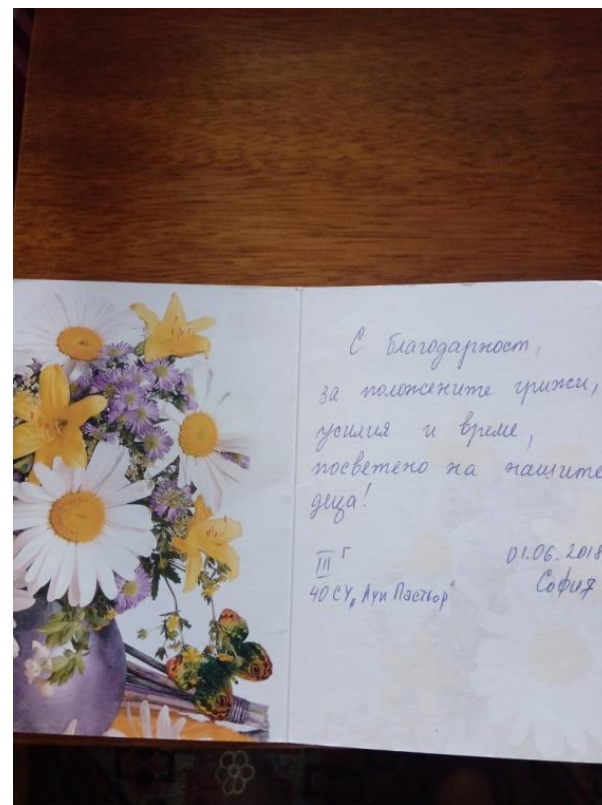 С благодарност,
за положените грижи,
усилия и време,
посветено на нашите
деца!
III г 01.06.2018
40 СУ „Луи Пастьор" София